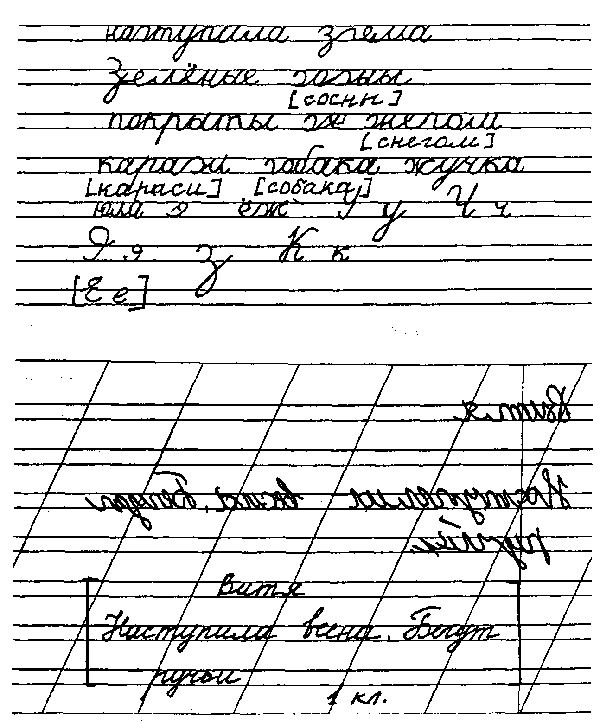 наступила згема
Зелёные зазны
[сосны]
покрыты зж знегом
[снегом]
карази зобака жучка
[караси] [собака]
юла э ёж у Ч ч
Я я з К к
[Е е]
Витя
Наступила весна. Бегут
ручьи
Витя
Наступила весна. Бегут
ручьи
1 кл.